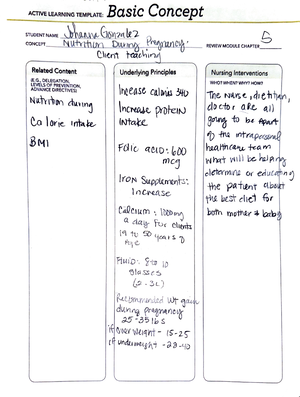 ACTIVE LEARNING TEMPLATE: Basic Concept
STUDENT NAME Johanna Gonzalez
CONCEPT Nutrition During Pregnancy: REVIEW MODULE CHAPTER 5
Client teaching
Related Content
(E.G., DELEGATION,
LEVELS OF PREVENTION,
ADVANCE DIRECTIVES)
Nutrition during
Calorie intake
BMI
Underlying Principles
Increase calorie 340
Increase protein
intake
Folic acid: 600
mcg
Iron Supplements:
Increase
Calcium: 1000mg
a day For clients
19 to 50 years of
Age
Fluid: 8 to 10
glasses
(2-3L)
Recommended wt gain
during pregnancy
25-35 lbs
if over weight - 15-25
if underweight - 28-40
Nursing Interventions
WHO? WHEN? WHY? HOW?
The Nurse, dietitian,
doctor are all
going to be apart
of the intrapersonal
healthcare team
what will be helping
determine or educating
the patient about
the best diet for
both mother & baby